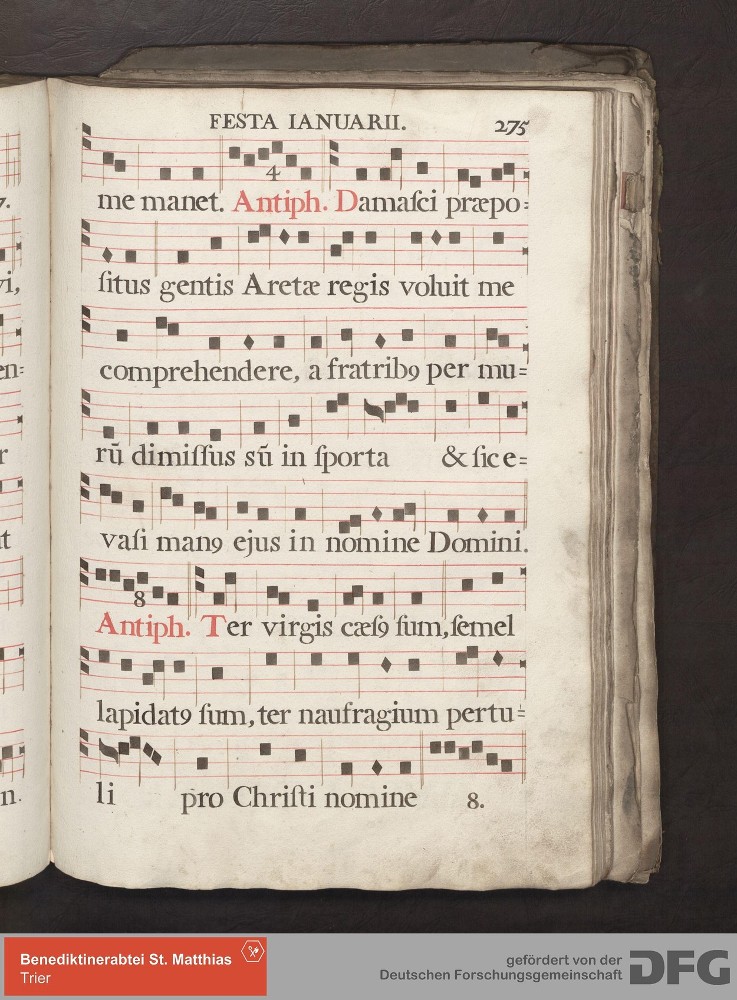 FESTA IANUARII. 275
4
me manet. Antiph. Damaſci præpo=
ſitus gentis Aretæ regis voluit me
comprehendere, a fratribꝯ per mu=
rū dimiſſus sū in ſporta & ſic e=
vaſi manꝯ ejus in nomine Domini.
8
Antiph. Ter virgis cæſꝯ ſum, ſemel
lapidatꝯ ſum, ter naufragium pertu=
li pro Chriſti nomine 8.
7.
vi,
en=
r
n.
Benediktinerabtei St. Matthias
Trier
gefördert von der
Deutschen Forschungsgemeinschaft
DFG